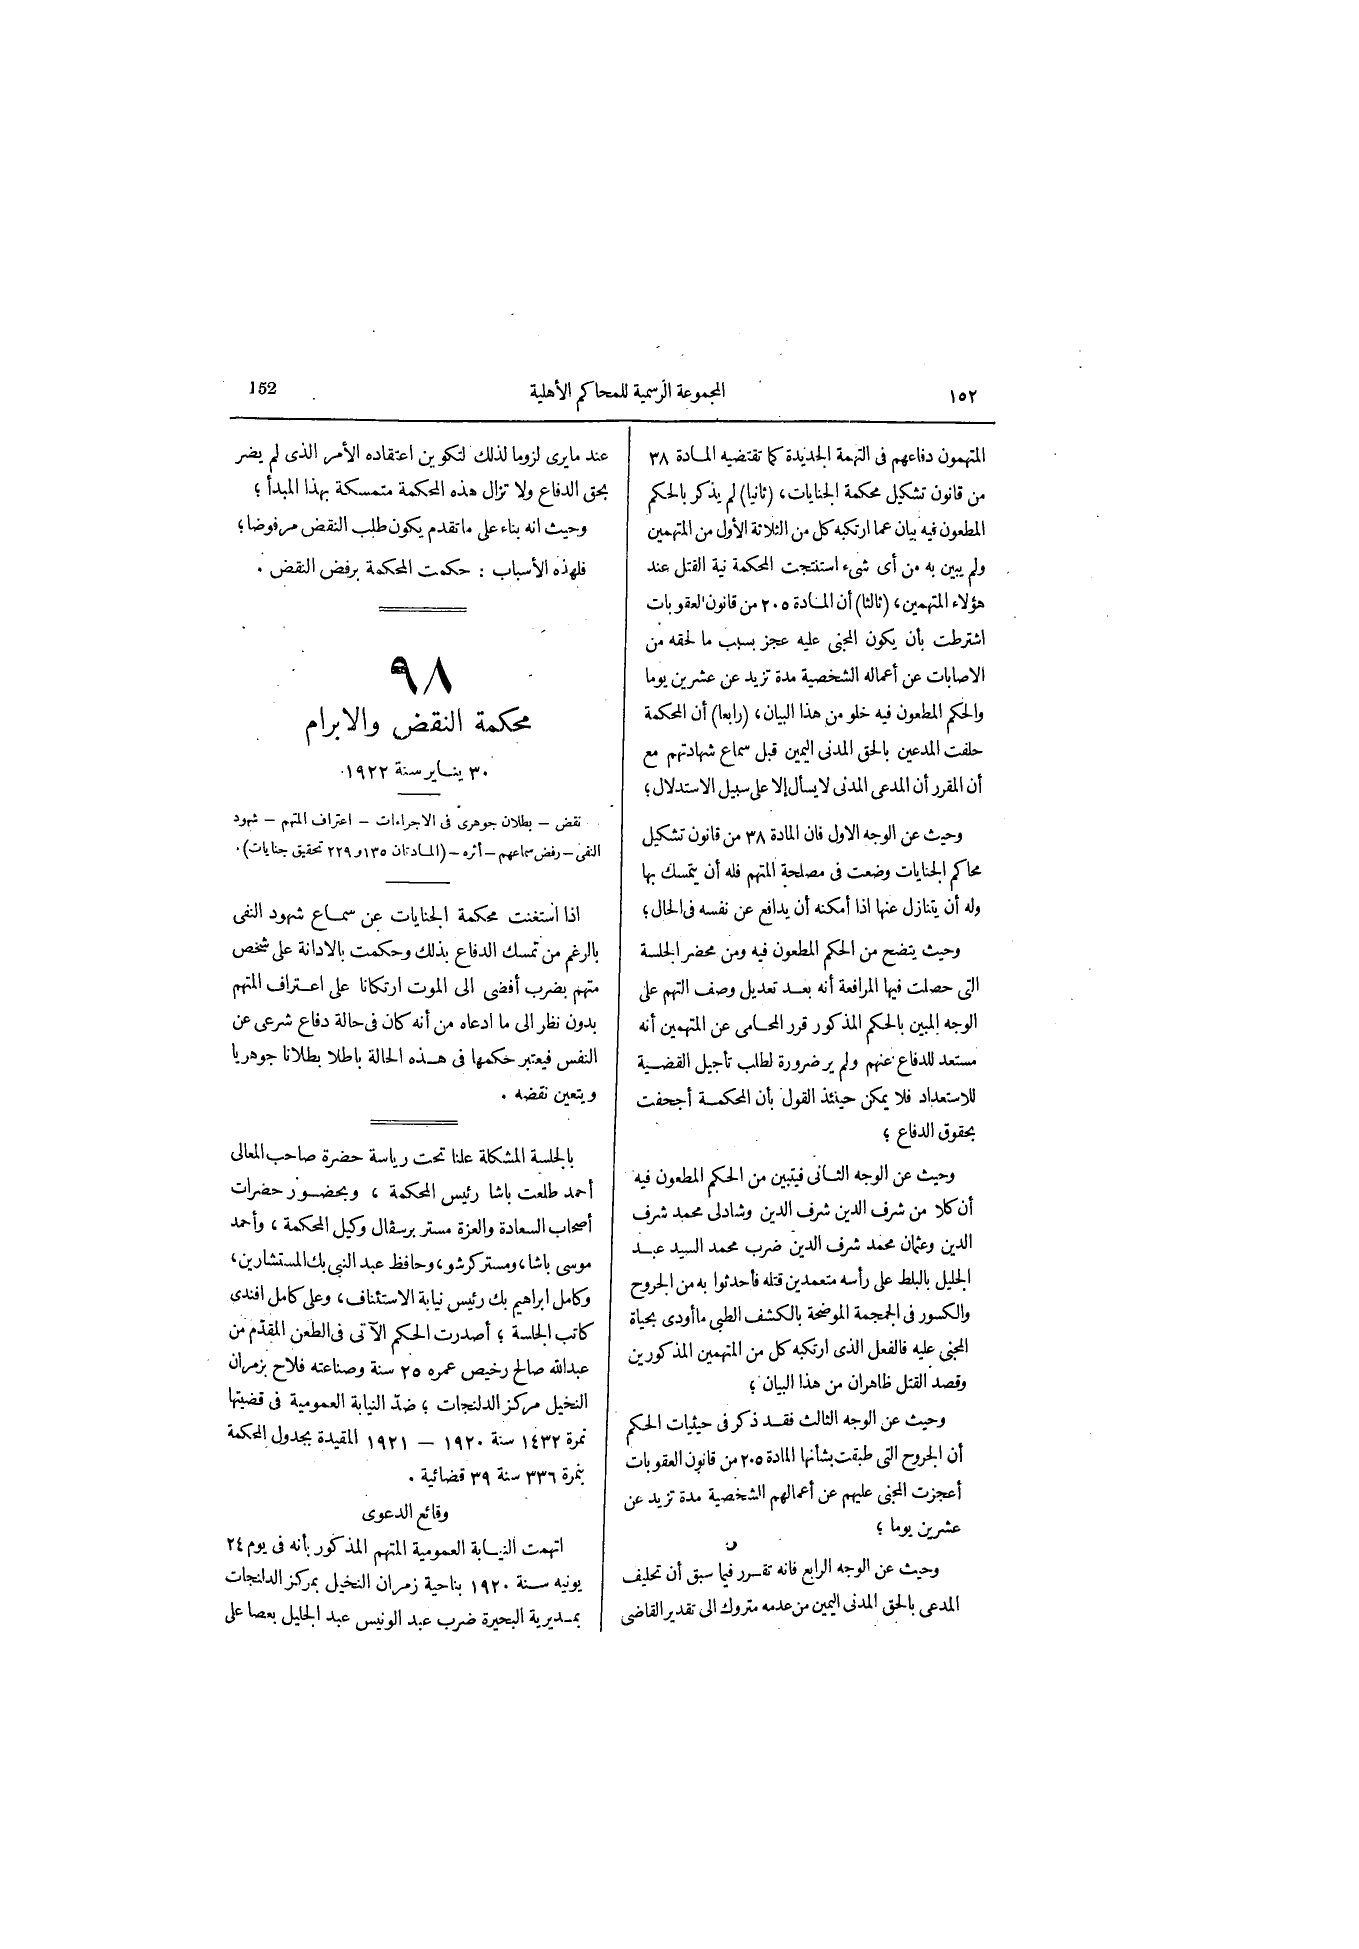 ١٥٢
المجموعة الرسمية للمحاكم الأهلية
152
المتهمون دفاعهم فى التهمة الجديدة كما تقتضيه المادة ٣٨
من قانون تشكيل محكمة الجنايات، (ثانيا) لم يذكر بالحكم
المطعون فيه بيان عما ارتكبه كل من الثلاثة الأول من المتهمين
ولم يبين به من أى شىء استنتجت المحكمة نية القتل عند
هؤلاء المتهمين، (ثالثا) أن المادة ٢٠٥ من قانون العقوبات
اشترطت بأن يكون المجنى عليه عجز بسبب ما لحقه من
الاصابات عن أعماله الشخصية مدة تزيد عن عشرين يوما
والحكم المطعون فيه خلو من هذا البيان، (رابعا) أن المحكمة
حلفت المدعين بالحق المدنى اليمين قبل سماع شهادتهم مع
أن المقرر أن المدعى المدنى لا يسأل إلا على سبيل الاستدلال؛
وحيث عن الوجه الاول فان المادة ٣٨ من قانون تشكيل
محاكم الجنايات وضعت فى مصلحة المتهم فله أن يتمسك بها
وله أن يتنازل عنها اذا أمكنه أن يدافع عن نفسه فى الحال؛
وحيث يتضح من الحكم المطعون فيه ومن محضر الجلسة
التى حصلت فيها المرافعة أنه بعد تعديل وصف التهم على
الوجه المبين بالحكم المذكور قرر المحامى عن المتهمين أنه
مستعد للدفاع عنهم ولم ير ضرورة لطلب تأجيل القضية
للاستعداد فلا يمكن حينئذ القول بأن المحكمة أجحفت
بحقوق الدفاع؛
وحيث عن الوجه الثانى فيتبين من الحكم المطعون فيه
أن كلا من شرف الدين شرف الدين وشادلى محمد شرف
الدين وعثمان محمد شرف الدين ضرب محمد السيد عبد
الجليل بالبلط على رأسه متعمدين قتله فأحدثوا به من الجروح
والكسور فى الجمجمة الموضحة بالكشف الطبى ما أودى بحياة
المجنى عليه فالفعل الذى ارتكبه كل من المتهمين المذكورين
وقصد القتل ظاهران من هذا البيان؛
وحيث عن الوجه الثالث فقد ذكر فى حيثيات الحكم
أن الجروح التى طبقت بشأنها المادة ٢٠٥ من قانون العقوبات
أعجزت المجنى عليهم عن أعمالهم الشخصية مدة تزيد عن
عشرين يوما؛
وحيث عن الوجه الرابع فانه تقرر فيما سبق أن تحليف
المدعى بالحق المدنى اليمين من عدمه متروك الى تقدير القاضى
عند ما يرى لزوما لذلك لتكوين اعتقاده الأمر الذى لم يضر
بحق الدفاع ولا تزال هذه المحكمة متمسكة بهذا المبدأ؛
وحيث انه بناء على ما تقدم يكون طلب النقض مرفوضا؛
فلهذه الأسباب : حكمت المحكمة برفض النقض .
٩٨
محكمة النقض والابرام
٣٠ يناير سنة ١٩٢٢
نقض – بطلان جوهرى فى الاجراءات – اعتراف المتهم – شهود
النفى – رفض سماعهم – أثره – (المادتان ١٣٥ و ٢٢٩ تحقيق جنايات).
اذا استغنت محكمة الجنايات عن سماع شهود النفى
بالرغم من تمسك الدفاع بذلك وحكمت بالادانة على شخص
متهم بضرب أفضى الى الموت ارتكانا على اعتراف المتهم
بدون نظر الى ما ادعاه من أنه كان فى حالة دفاع شرعى عن
النفس فيعتبر حكمها فى هذه الحالة باطلا بطلانا جوهريا
ويتعين نقضه .
بالجلسة المشكلة علنا تحت رياسة حضرة صاحب المعالى
أحمد طلعت باشا رئيس المحكمة ، وبحضور حضرات
أصحاب السعادة والعزة مستر برسڤال وكيل المحكمة ، وأحمد
موسى باشا، ومستر كرشو، وحافظ عبد النبى بك المستشارين،
وكامل ابراهيم بك رئيس نيابة الاستئناف، وعلى كامل افندى
كاتب الجلسة ؛ أصدرت الحكم الآتى فى الطعن المقدّم من
عبدالله صالح رخيص عمره ٢٥ سنة وصناعته فلاح بزمران
النخيل مركز الدلنجات ؛ ضدّ النيابة العمومية فى قضيتها
نمرة ١٤٣٢ سنة ١٩٢٠ – ١٩٢١ المقيدة بجدول المحكمة
بنمرة ٣٣٦ سنة ٣٩ قضائية .
وقائع الدعوى
اتهمت النيابة العمومية المتهم المذكور بأنه فى يوم ٢٤
يونيه سنة ١٩٢٠ بناحية زمران النخيل بمركز الدلنجات
بمديرية البحيرة ضرب عبد الونيس عبد الجليل بعصا على